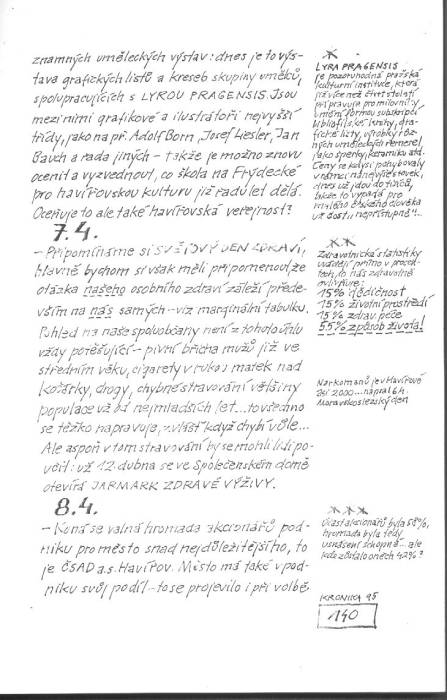 známých uměleckých výstav: dnes je to výs-
tava grafických listů a kreseb skupiny umělců,
spolupracujících s LYROU PRAGENSIS. Jsou
mezi nimi grafikové a ilustrátoři nejvyšší
třídy, jako na př. Adolf Born, Josef Liesler, Jan
Bauch a řada jiných – takže je možno znovu
ocenit a vyzvednout, co škola na Frýdecké
pro havířovskou kulturu již řadu let dělá.
Oceňuje to ale také havířovská veřejnost?
7.4.
– Připomínáme si SVĚTOVÝ DEN ZDRAVÍ,
hlavně bychom si však měli připomenout, že
otázka našeho osobního zdraví záleží přede-
vším na nás samých – viz marginální tabulku.
Pohled na naše spoluobčany není z tohoto úhlu
vždy potěšující – pivní břicha mužů již ve
středním věku, cigarety v rukou matek nad
kočárky, drogy, chybné stravování většiny
populace už od nejmladších let... to všechno
se těžko napravuje, zvlášť když chybí vůle...
Ale aspoň v tom stravování by se mohli lidi po-
učit: už 12. dubna se ve Společenském domě
otevírá JARMARK ZDRAVÉ VÝŽIVY.
8.4.
– Koná se valná hromada akcionářů pod-
niku pro město snad nejdůležitějšího, to
je ČSAD a.s. Havířov. Město má také v pod-
niku svůj podíl – to se projevilo i při volbě
*
LYRA PRAGENSIS
je pozoruhodná pražská
kulturní instituce, která
již více než čtvrt století
připravuje pro milovníky
umění formou subskripcí
bibliofilské knihy, gra-
fické listy, výrobky růz-
ných uměleckých řemesel
jako šperky, keramiku atd.
Ceny se kdysi pohybovaly
v rámci nanejvýše stovek,
dnes už jdou do tisíců,
takže to vypadá pro
malého českého člověka
už dosti nepřístupně"..
**
Zdravotnické statistiky
uvádějí přímo v procen-
tech, co nás zdravotně
ovlivňuje:
15% dědičnost
15% životní prostředí
15% zdrav. péče
55% způsob života!
Narkomanů je v Havířově
asi 2000... napsal 6.4.
Moravskoslezský den
***
Účast akcionářů byla 58%,
hromada byla tedy
usnášení schopná... ale
kde zůstalo oněch 42%?
KRONIKA 95
140